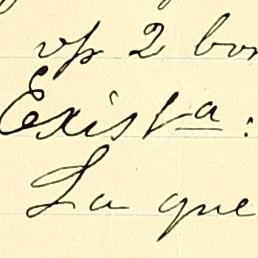 vs 2 bon
Exista:
La que